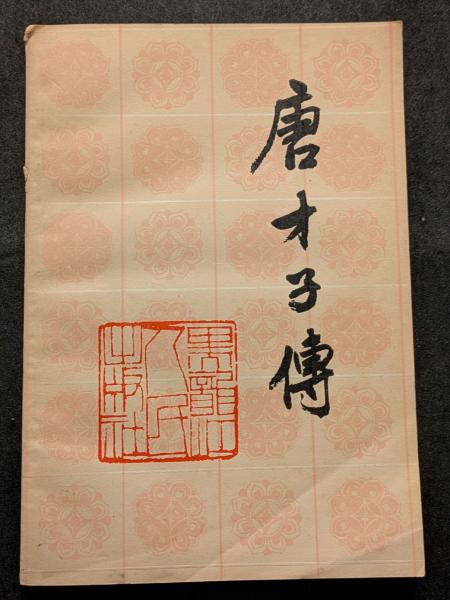 唐才子傳
黑龍江
人民
出版社